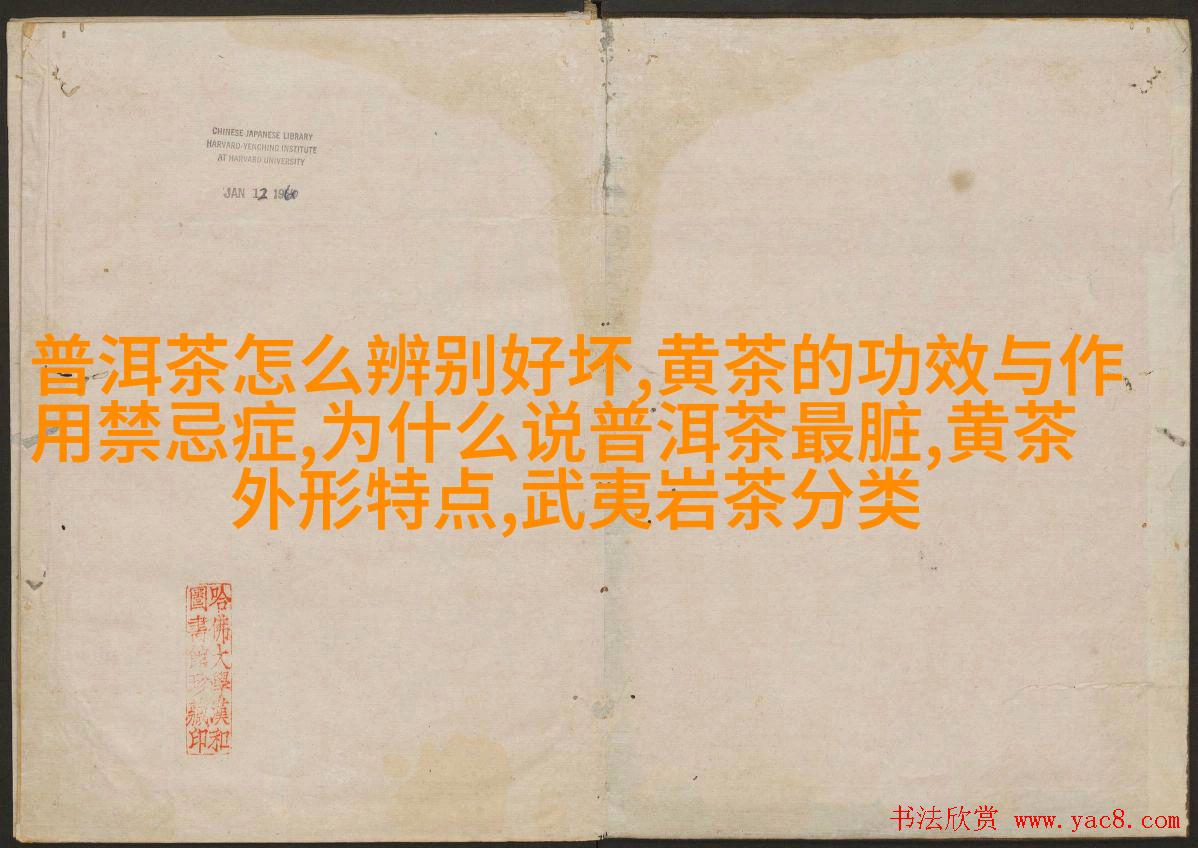 CHINESE-JAPANESE LIBRARY
HARVARD-YENCHING INSTITUTE
AT HARVARD UNIVERSITY
JAN 12 1960
普洱茶怎么辨别好坏,黄茶的功效与作
用禁忌症,为什么说普洱茶最脏,黄茶
外形特点,武夷岩茶分类
哈佛大學漢和
圖書館珍藏印
书法欣赏 www.yac8.com